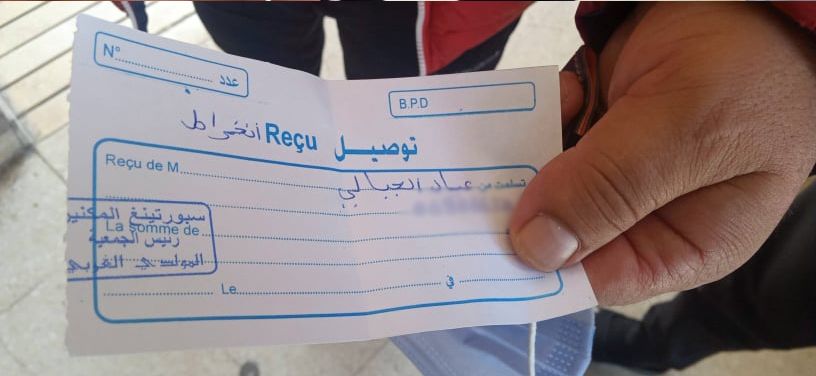 N° عدد
B.P.D
توصيل Reçu أنخراط
Reçu de M. تسلمت من عماد الجبالي
La somme de
سبورتينغ المكنين
رئيس الجمعية
المولدي الغربي
Le في